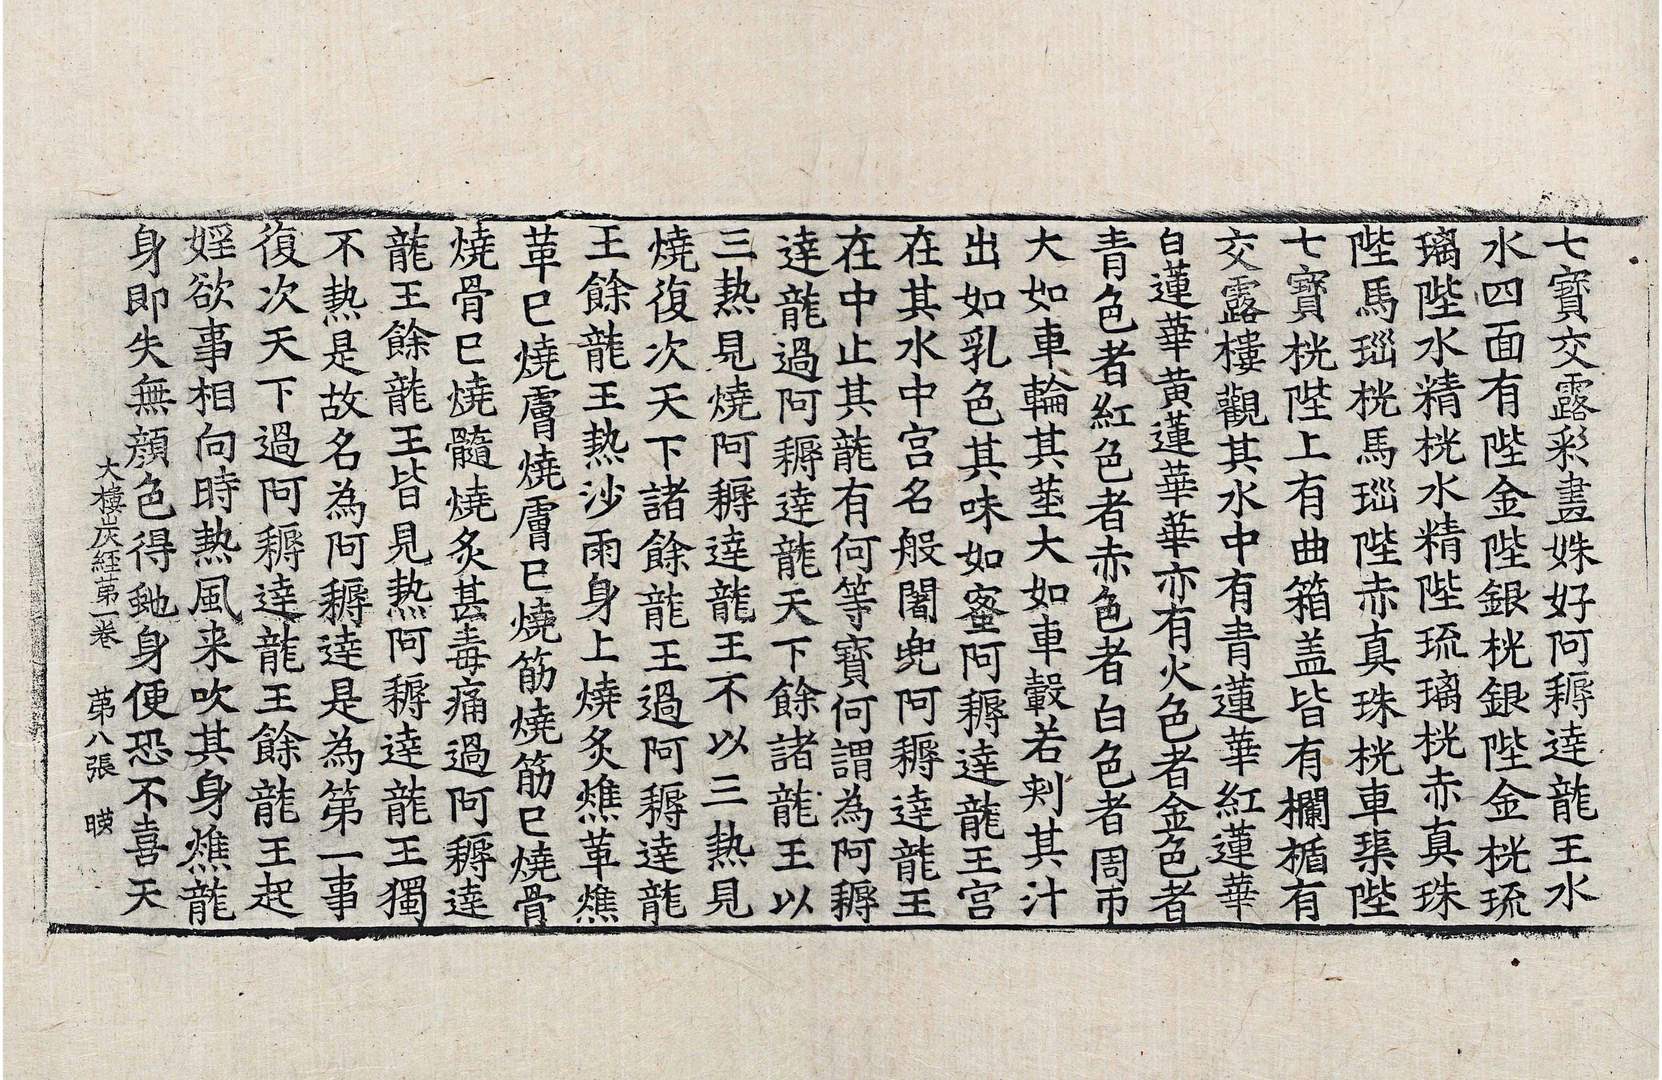 七寶交露彩畫姝好阿耨達龍王水
水四面有陛金陛銀桄銀陛金桄琉
璃陛水精桄水精陛琉璃桄赤真珠
陛馬瑙桄馬瑙陛赤真珠桄車璖陛
七寶桄陛上有曲箱盖皆有欄楯有
交露樓觀其水中有青蓮華紅蓮華
白蓮華黄蓮華華亦有火色者金色者
青色者紅色者赤色者白色者周帀
大如車輪其莖大如車轂若刾其汁
出如乳色其味如蜜阿耨達龍王宮
在其水中宮名般闍兜阿耨達龍王
在中止其龍有何等寶何謂為阿耨
達龍過阿耨達龍天下餘諸龍王以
三熱見燒阿耨達龍王不以三熱見
燒復次天下諸餘龍王過阿耨達龍
王餘龍王熱沙雨身上燒炙燋革燋
革已燒膚燒膚已燒筋燒筋已燒骨
燒骨已燒髓燒炙甚毒痛過阿耨達
龍王餘龍王皆見熱阿耨達龍王獨
不熱是故名為阿耨達是為第一事
復次天下過阿耨達龍王餘龍王起
婬欲事相向時熱風来吹其身燋龍
身即失無顔色得虵身便恐不喜天
大樓炭經第一卷 第八張 暎